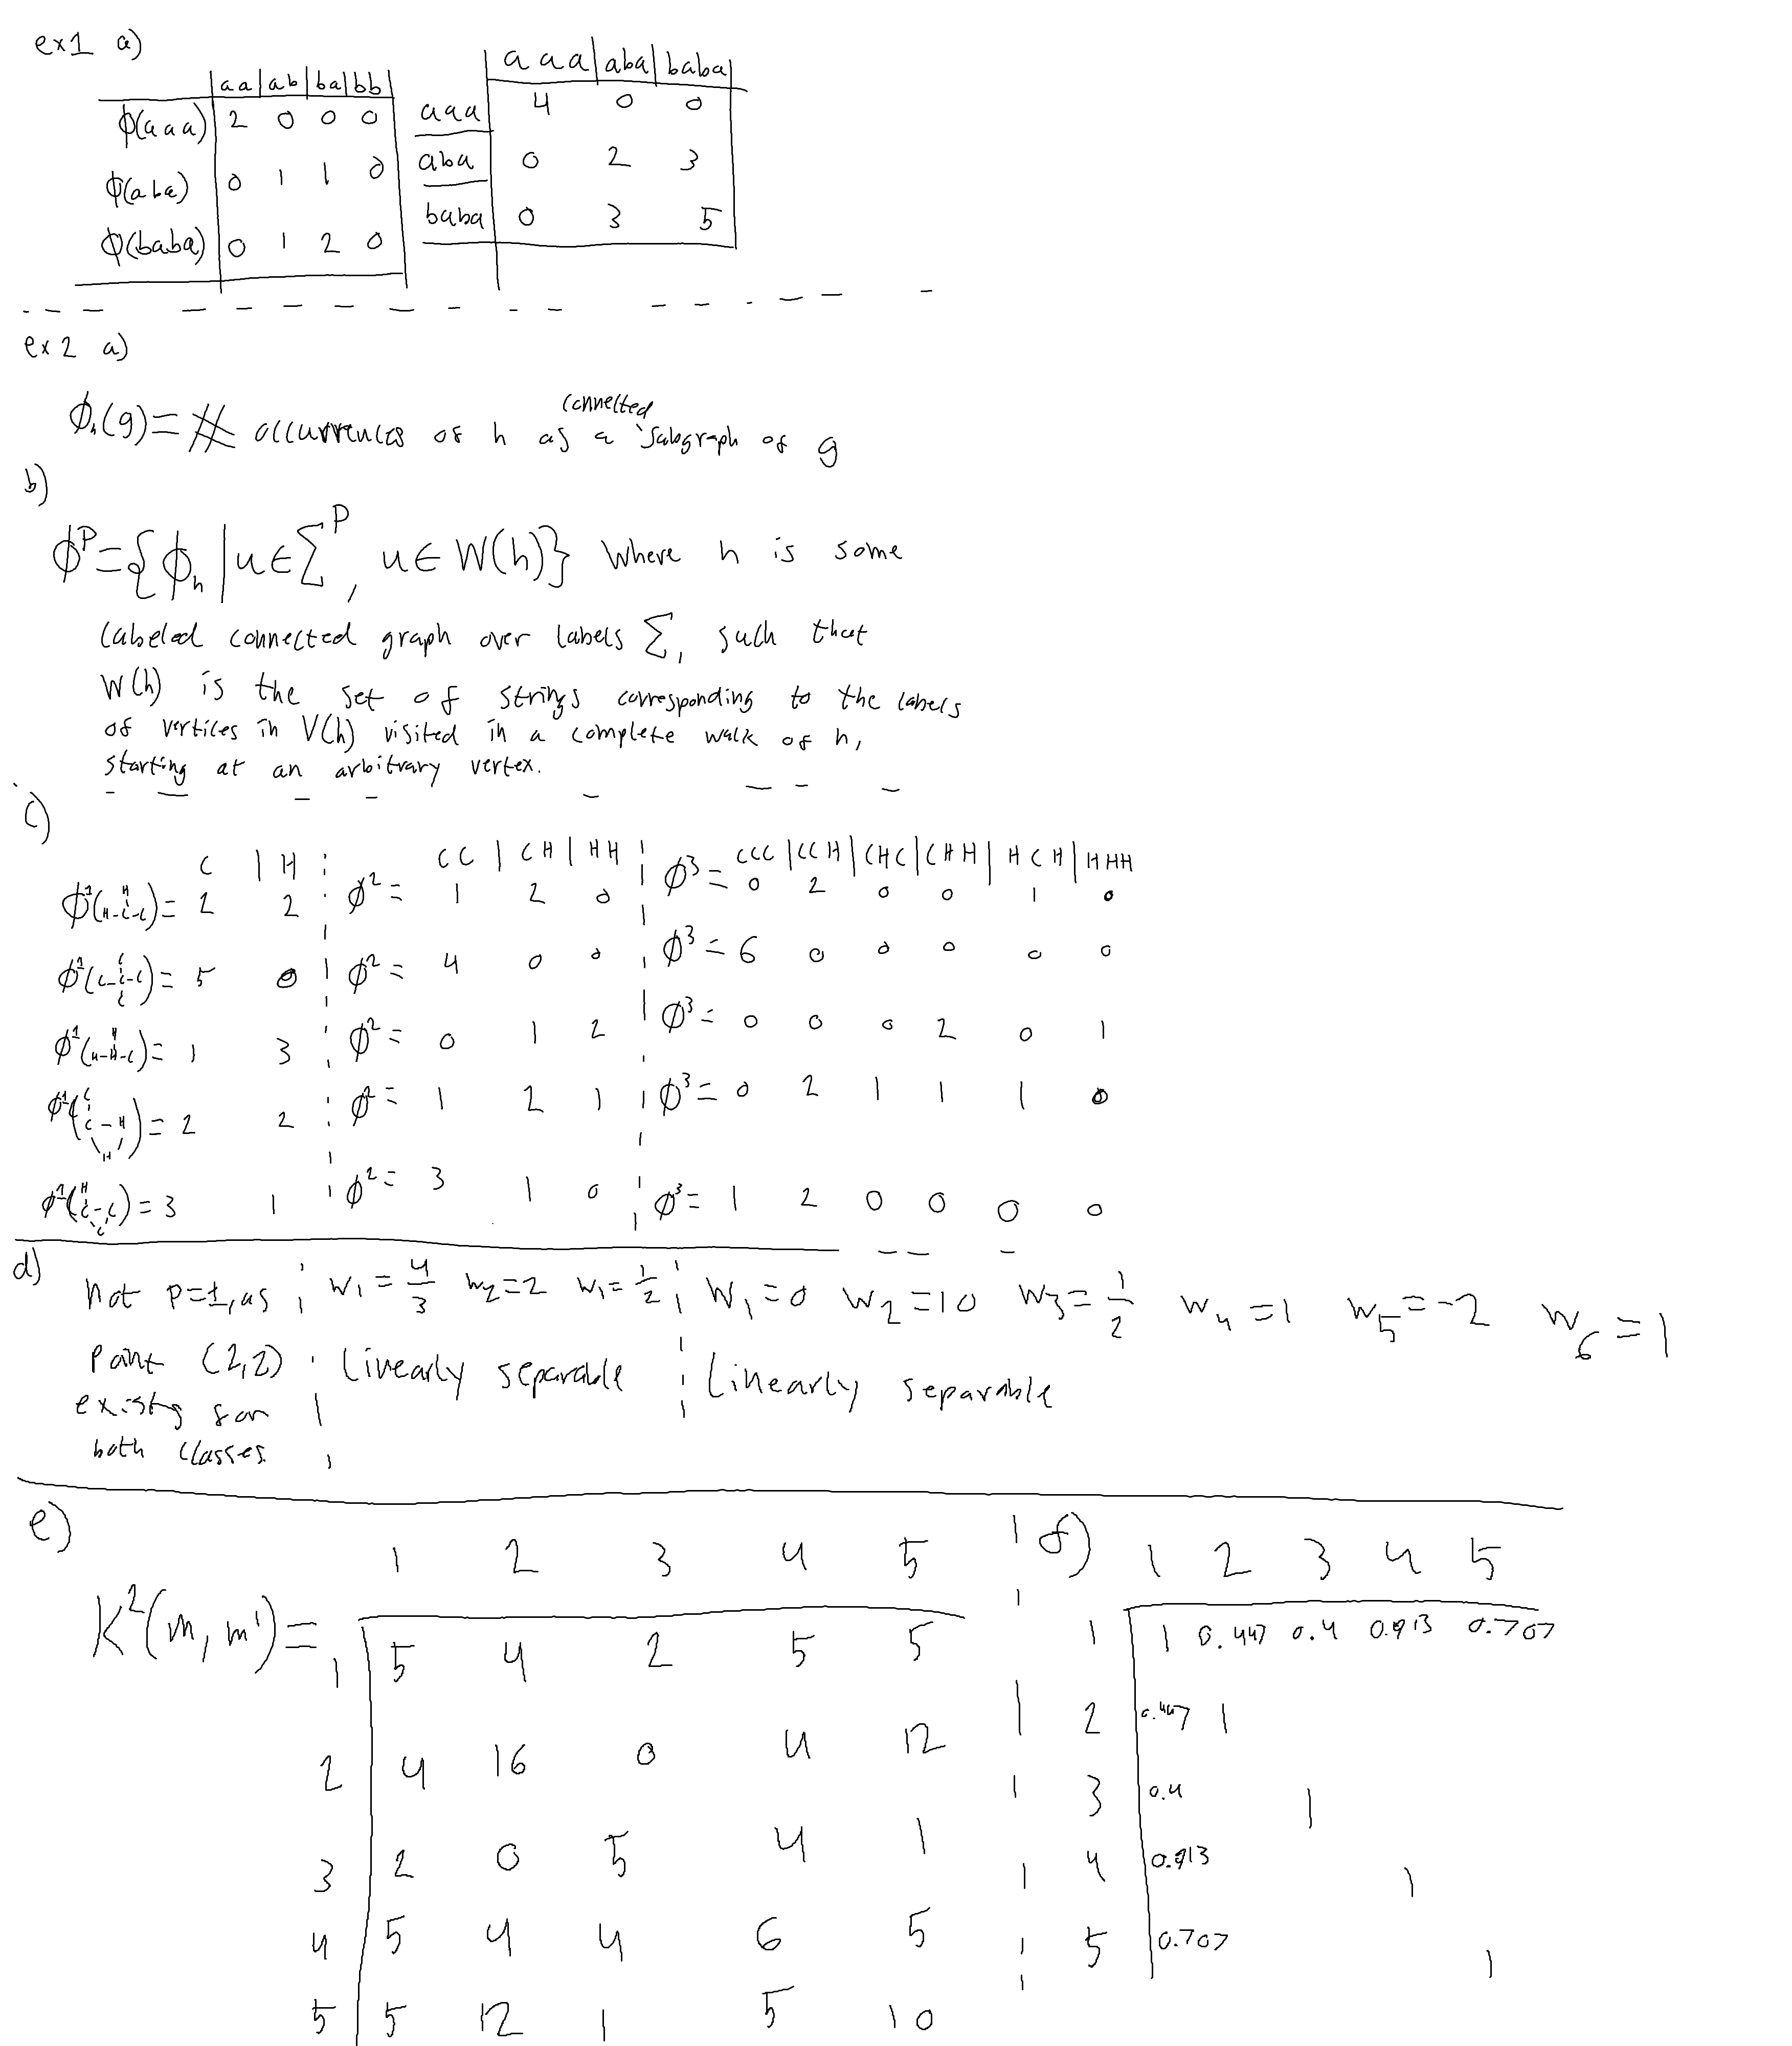 ex1 a)
aa | ab | ba | bb
ϕ(aaa) 2 0 0 0
ϕ(aba) 0 1 1 0
ϕ(baba) 0 1 2 0
aaa | aba | baba
aaa 4 0 0
aba 0 2 3
baba 0 3 5
ex2 a)
ϕₕ(g) = # occurrences of h as a connected subgraph of g
b)
ϕᴾ = {ϕₕ | u ∈ Σᴾ, u ∈ W(h)} where h is some
labeled connected graph over labels Σ, such that
W(h) is the set of strings corresponding to the labels
of vertices in V(h) visited in a complete walk of h,
starting at an arbitrary vertex.
c)
C | H CC | CH | HH ϕ³ = CCC | CCH | CHC | CHH | HCH | HHH
ϕ¹( ) = 2 2 ϕ² = 1 2 0 0 2 0 0 1 0
ϕ¹( ) = 5 0 ϕ² = 4 0 0 ϕ³ = 6 0 0 0 0 0
ϕ¹( ) = 1 3 ϕ² = 0 1 2 ϕ³ = 0 0 0 2 0 1
ϕ¹( ) = 2 2 ϕ² = 1 2 1 ϕ³ = 0 2 1 1 1 0
ϕ¹( ) = 3 1 ϕ² = 3 1 0 ϕ³ = 1 2 0 0 0 0
d)
not p=1, as
point (2,2)
existg for
both classes
w₁ = 4/3 w₂ = 2 w₁ = 1/2
linearly separable
w₁ = 0 w₂ = 10 w₃ = 1/2 w₄ = 1 w₅ = -2 w₆ = 1
linearly separable
e)
1 2 3 4 5
K²(m, m') =
1 5 4 2 5 5
2 4 16 0 4 12
3 2 0 5 4 1
4 5 4 4 6 5
5 5 12 1 5 10
f) 1 2 3 4 5
1 1 0.447 0.4 0.913 0.707
2 0.447 1
3 0.4 1
4 0.913 1
5 0.707 1